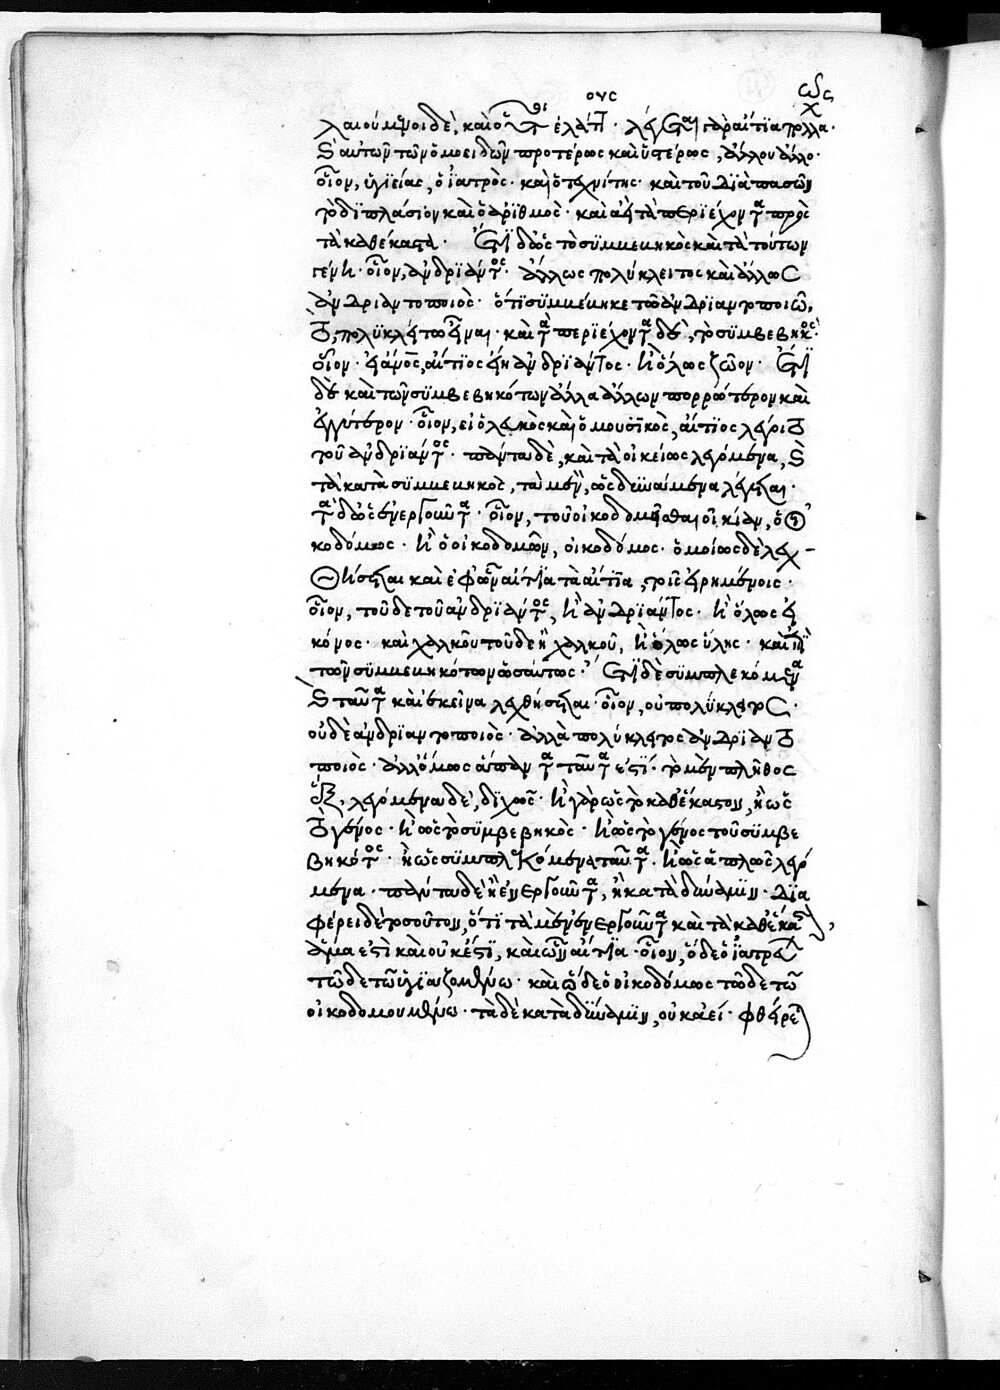 λαιούμενοι δὲ, καὶ οὗτοι ἐλάττους· λέγεται γὰρ αἴτια πολλαχῶς·
καὶ αὐτῶν τῶν ὁμοειδῶν προτέρως καὶ ὑστέρως, ἄλλου ἄλλο·
οἷον, ὑγιείας, ὁ ἰατρὸς· καὶ ὁ τεχνίτης· καὶ τοῦ διὰ πασῶν
τὸ διπλάσιον καὶ ὁ ἀριθμὸς· καὶ ἀεὶ τὰ περιέχοντα πρὸς
τὰ καθέκαστα· ἔτι δ' ὡς τὸ συμβεβηκὸς καὶ τὰ τούτων
γένη· οἷον, ἀνδριάντος· ἄλλως πολύκλειτος καὶ ἄλλως
ἀνδριαντοποιὸς· ὅτι συμβέβηκε τῶ ἀνδριαντοποιῶ,
τὸ, πολυκλείτω εἶναι· καὶ τὰ περιέχοντα δὲ, τὸ συμβεβηκὸς·
οἷον· ἄνθρωπος, αἴτιος ἂν εἴη ἀνδριάντος· ἢ ὅλως ζῶον· ἔτι
δὲ καὶ τῶν συμβεβηκότων ἄλλα ἄλλων πορρώτερον καὶ
ἐγγύτερον· οἷον, εἰ ὁ λευκὸς καὶ ὁ μουσικὸς, αἴτιος λέγοιτο
τοῦ ἀνδριάντος· πάντα δὲ, καὶ τὰ οἰκείως λεγόμενα, καὶ
τὰ κατὰ συμβεβηκὸς, τὰ μὲν, ὡς δυνάμενα λέγεται·
τὰ δ' ὡς ἐνεργοῦντα· οἷον, τοῦ οἰκοδομεῖσθαι οἰκίαν, ὁ οἰ
κοδόμος· ἢ ὁ οἰκοδομῶν, οἰκοδόμος· ὁμοίως δὲ λεχ
θήσεται καὶ ἐφ' ὧν αἴτια τὰ αἴτια, τοῖς εἰρημένοις·
οἷον, τοῦδε τοῦ ἀνδριάντος, ἢ ἀνδριάντος· ἢ ὅλως εἰ
κόνος· καὶ χαλκοῦ τοῦδε ἢ χαλκοῦ, ἢ ὅλως ὕλης· καὶ ἐπὶ
τῶν συμβεβηκότων ὡσαύτως· ἔτι δὲ συμπλεκόμενα
καὶ ταῦτα κἀκεῖνα λεχθήσεται· οἷον, οὐ πολύκλειτος·
οὐδὲ ἀνδριαντοποιὸς· ἀλλὰ πολύκλειτος ἀνδριαντο
ποιὸς· ἀλλ' ὅμως ἅπαντα ταῦτά ἐστι· τὸ μὲν πλῆθος
ἓξ, λεγόμενα δὲ, διχῶς· ἢ γὰρ ὡς τὸ καθέκαστον, ἢ ὡς
τὸ γένος· ἢ ὡς τὸ συμβεβηκὸς· ἢ ὡς τὸ γένος τοῦ συμβε
βηκότος· ἢ ὡς συμπλεκόμενα ταῦτα· ἢ ὡς ἁπλῶς λεγό
μενα· πάντα δὲ ἢ ἐνεργοῦντα, ἢ κατὰ δύναμιν· δια
φέρει δὲ τοσοῦτον, ὅτι τὰ μὲν ἐνεργοῦντα καὶ τὰ καθέκαστα,
ἅμα ἐστὶ καὶ οὐκ ἔστι, καὶ ὧν αἴτια· οἷον, ὅδε ὁ ἰατρεύων
τῶδε τῶ ὑγιαζομένω· καὶ ὅδε ὁ οἰκοδόμος τῶδε τῶ
οἰκοδομουμένω· τὰ δὲ κατὰ δύναμιν, οὐκ ἀεί· φθείρεται